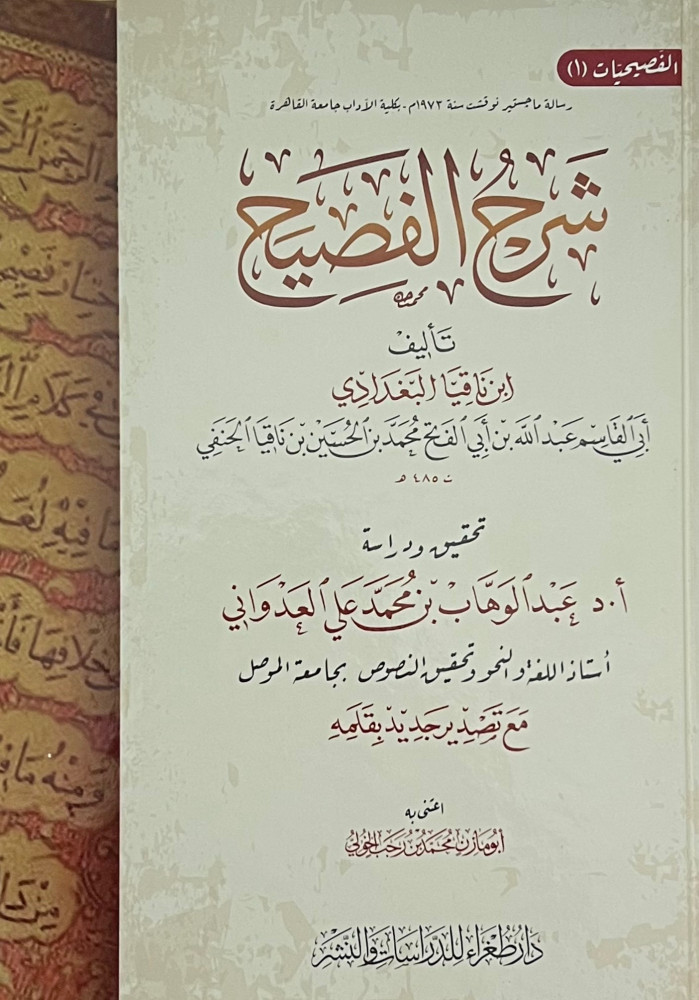 الفصيحيات (١)
رسالة ماجستير نوقشت سنة ١٩٧٣م - بكلية الآداب جامعة القاهرة
شرح الفصيح
تأليف
ابن ناقيا البغدادي
أبي القاسم عبد الله بن أبي الفتح محمد بن الحسين بن ناقيا الحنفي
ت ٤٨٥ هـ
تحقيق ودراسة
أ.د عبد الوهاب بن محمد علي العدواني
أستاذ اللغة والنحو وتحقيق النصوص بجامعة الموصل
مع تصدير جديد بقلمه
اعتنى به
أبو مازن محمد بن رجب الخولي
دار طغراء للدراسات والنشر